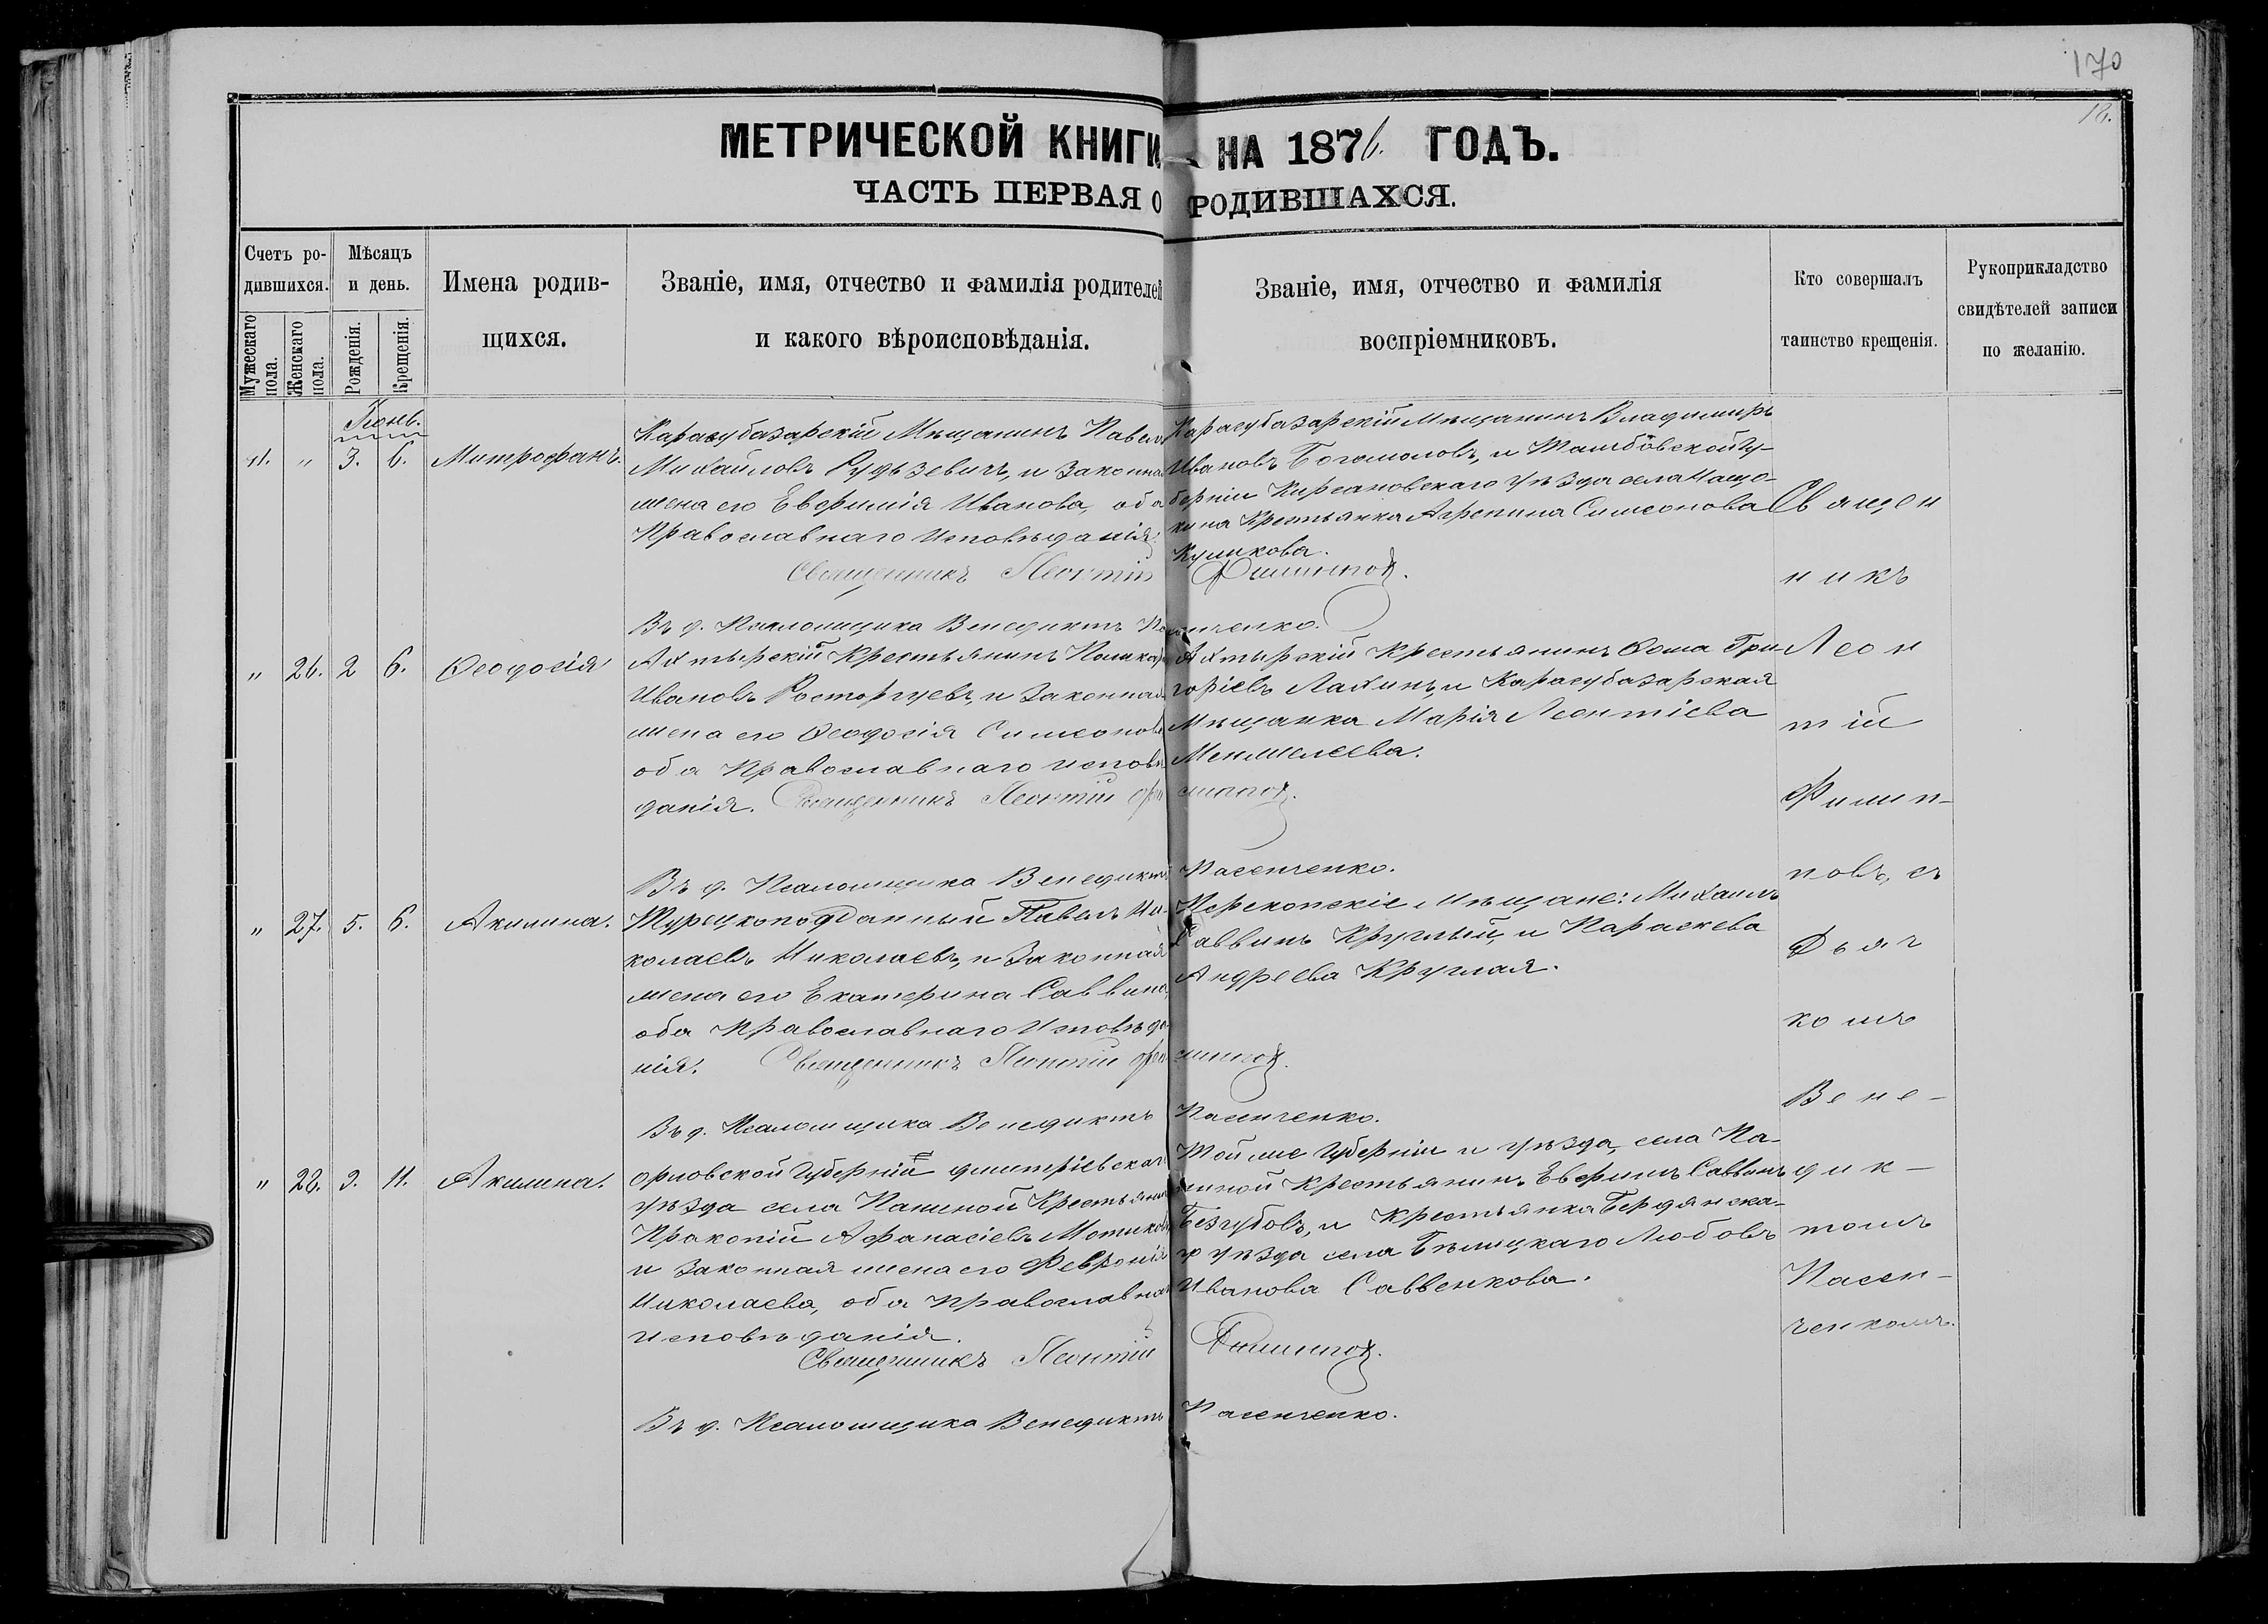 170
18.
МЕТРИЧЕСКОЙ КНИГИ НА 1876. ГОДЪ.
ЧАСТЬ ПЕРВАЯ О РОДИВШАХСЯ.
Счетъ ро-
дившихся.
Мужескаго
пола.
Женскаго
пола.
Мѣсяцъ
и день.
Рожденія.
Крещенія.
Имена родив-
щихся.
Званіе, имя, отчество и фамилія родителей
и какого вѣроисповѣданія.
Званіе, имя, отчество и фамилія
воспріемниковъ.
Кто совершалъ
таинство крещенія.
Рукоприкладство
свидѣтелей записи
по желанію.
Іюнь.
" 3. 6. Митрофанъ.
Карасубазарскій Мѣщанинъ Павелъ
Михайловъ Рудзевичъ, и законная
жена его Евфимія Иванова, оба
Православнаго Исповѣданія.
Карасубазарскій Мѣщанинъ Владимиръ
Ивановъ Богомоловъ, и Тамбовской Гу-
берніи Кирсановскаго уѣзда села Нащо-
кина Крестьянка Агрепина Симеонова
Куликова.
Священникъ Леонтій Филиппов.
Въ д. Псаломщика Венедиктъ Пасенченко.
" 26. 2 6. Ѳеодосія
Ахтырскій Крестьянинъ Поликарпъ
Ивановъ Расторгуевъ, и Законная
жена его Ѳеодосія Симеонова
оба Православнаго исповѣ
данія. Священникъ Леонтій Филиппов.
Ахтырскій Крестьянинъ Ѳома Гри-
горіевъ Лахинъ, и Карасубазарская
Мѣщанка Марія Леонтіева
Менжелеева.
Въ д. Псаломщика Венедиктъ Пасенченко.
" 27. 5. 6. Акилина.
Турецкоподданный Павелъ Ни-
колаевъ Николаевъ, и Законная
жена его Екатерина Саввина,
оба Православнаго Исповѣда-
нія. Священникъ Леонтій Филиппов.
Перекопскіе Мѣщане: Михаилъ
Саввинъ Круглый, и Параскева
Андреева Круглая.
Въ д. Псаломщика Венедиктъ Пасенченко.
" 28. 3. 11. Акилина.
Орловской Губерніи Дмитріевскаго
уѣзда села Паниной Крестьянинъ
Прокопій Афанасіевъ
и Законная жена его Февронія
Николаева, оба православнаго
исповѣданія.
Той же Губерніи и уѣзда, села Па-
ниной Крестьянинъ Евфимъ Саввинъ
Беззубовъ, и Крестьянка Бердянска-
го уѣзда села Бѣлицкаго Любовь
Иванова Саввенкова.
Священникъ Леонтій Филиппов.
Въ д. Псаломщика Венедиктъ Пасенченко.
Священ
никъ
Леон
тій
Филип-
повъ, съ
Дьяч
комъ
Вене-
дик-
томъ
Пасен-
ченкомъ.